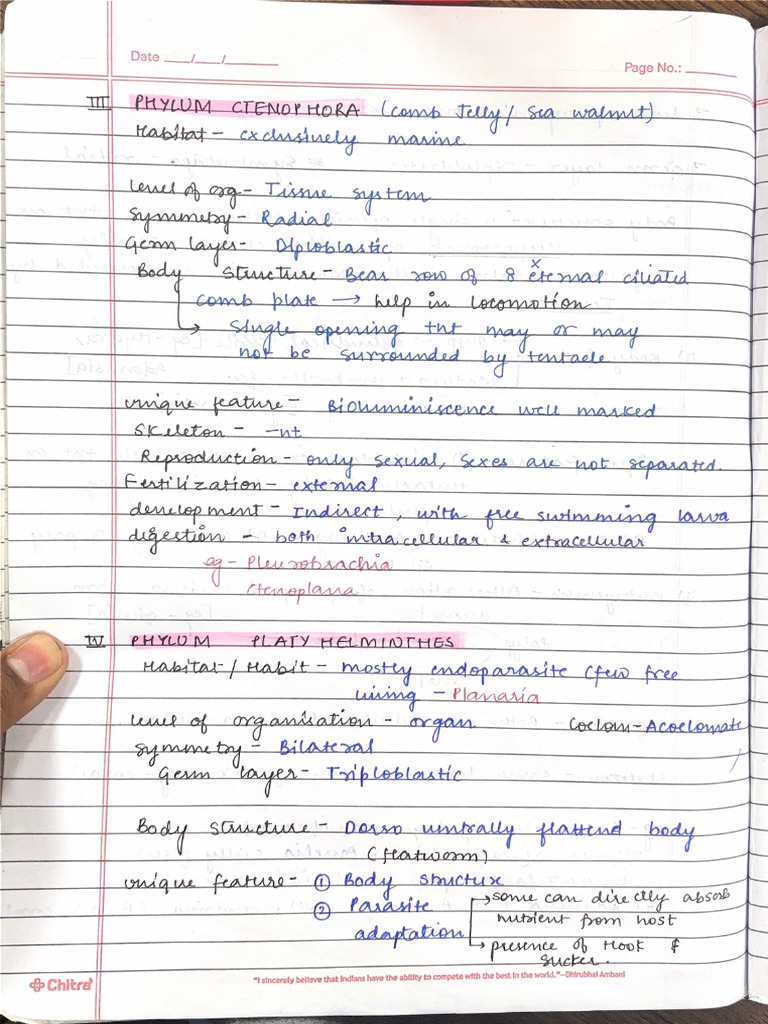 Date ___/___/______
Page No.: ______
III PHYLUM CTENOPHORA (Comb Jelly/ Sea walnut)
Habitat - exclusively marine
level of org - Tissue system
Symmetry - Radial
Germ layer - Diploblastic
Body structure - Bear row of 8 eternal ciliated
x
comb plate → help in locomotion
→ Single opening tht may or may
not be surrounded by tentacle
unique feature - Bioluminiscence well marked
Skeleton - -nt
Reproduction - only sexual, sexes are not separated.
Fertilization - external
development - Indirect, with free swimming larva
digestion - both intracellular & extracellular
eg - Pleurobrachia
Ctenoplana
IV PHYLUM PLATYHELMINTHES
Habitat / Habit - mostly endoparasite (few free
living - Planaria
level of organisation - organ Coelom - Acoelomate
symmetry - Bilateral
Germ layer - Triploblastic
Body structure - Dorso ventrally flattend body
(flatworm)
unique feature - ① Body structure
② Parasite adaptation → some can directly absorb
nutrient from host
→ presence of Hook &
sucker.
Chitra
"I sincerely believe that Indians have the ability to compete with the best in the world."-Dhirubhai Ambani